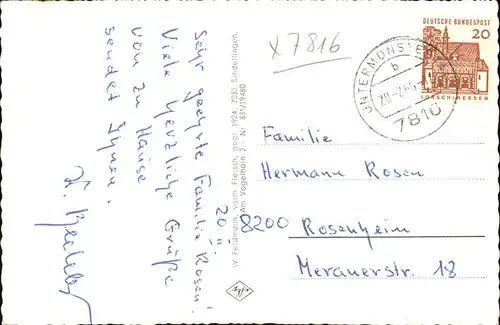 20. II.
Sehr geehrte Familie Rosen!
Viele herzliche Grüße
von zu Hause
sendet Ihnen.
W. Feldmann, vorm. Fleisch, gegr. 1924, 7032 Sindelfingen,
Am Vogelhain 2 - Nr. 831/19480
x 7816
DEUTSCHE BUNDESPOST
20
LORSCH/HESSEN
b
7816
Familie
Hermann Rosen
8200 Rosenheim
Meranerstr. 18